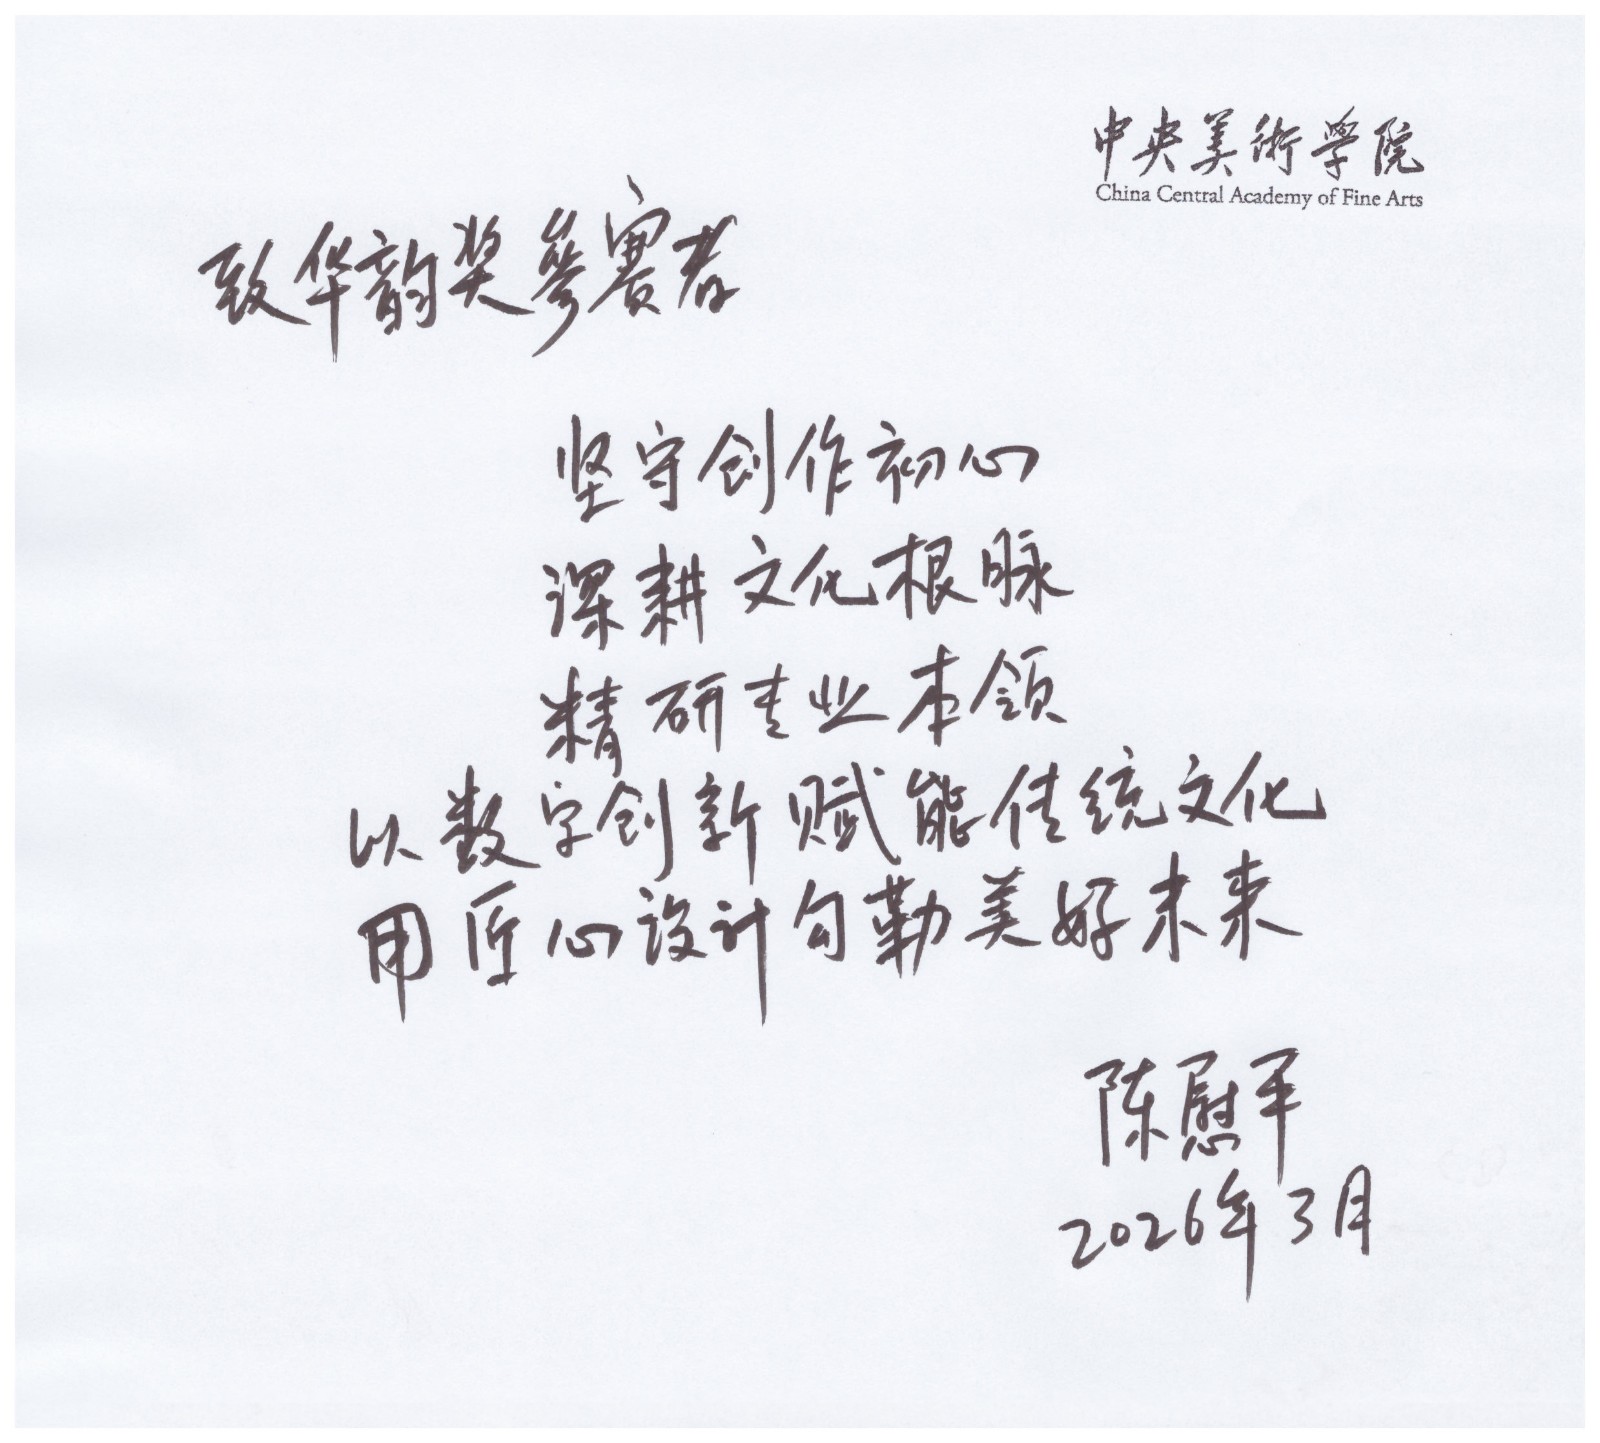 中央美術學院
China Central Academy of Fine Arts
致华韵奖参赛者
坚守创作初心
深耕文化根脉
精研专业本领
以数字创新赋能传统文化
用匠心设计勾勒美好未来
陈慰平
2026年3月